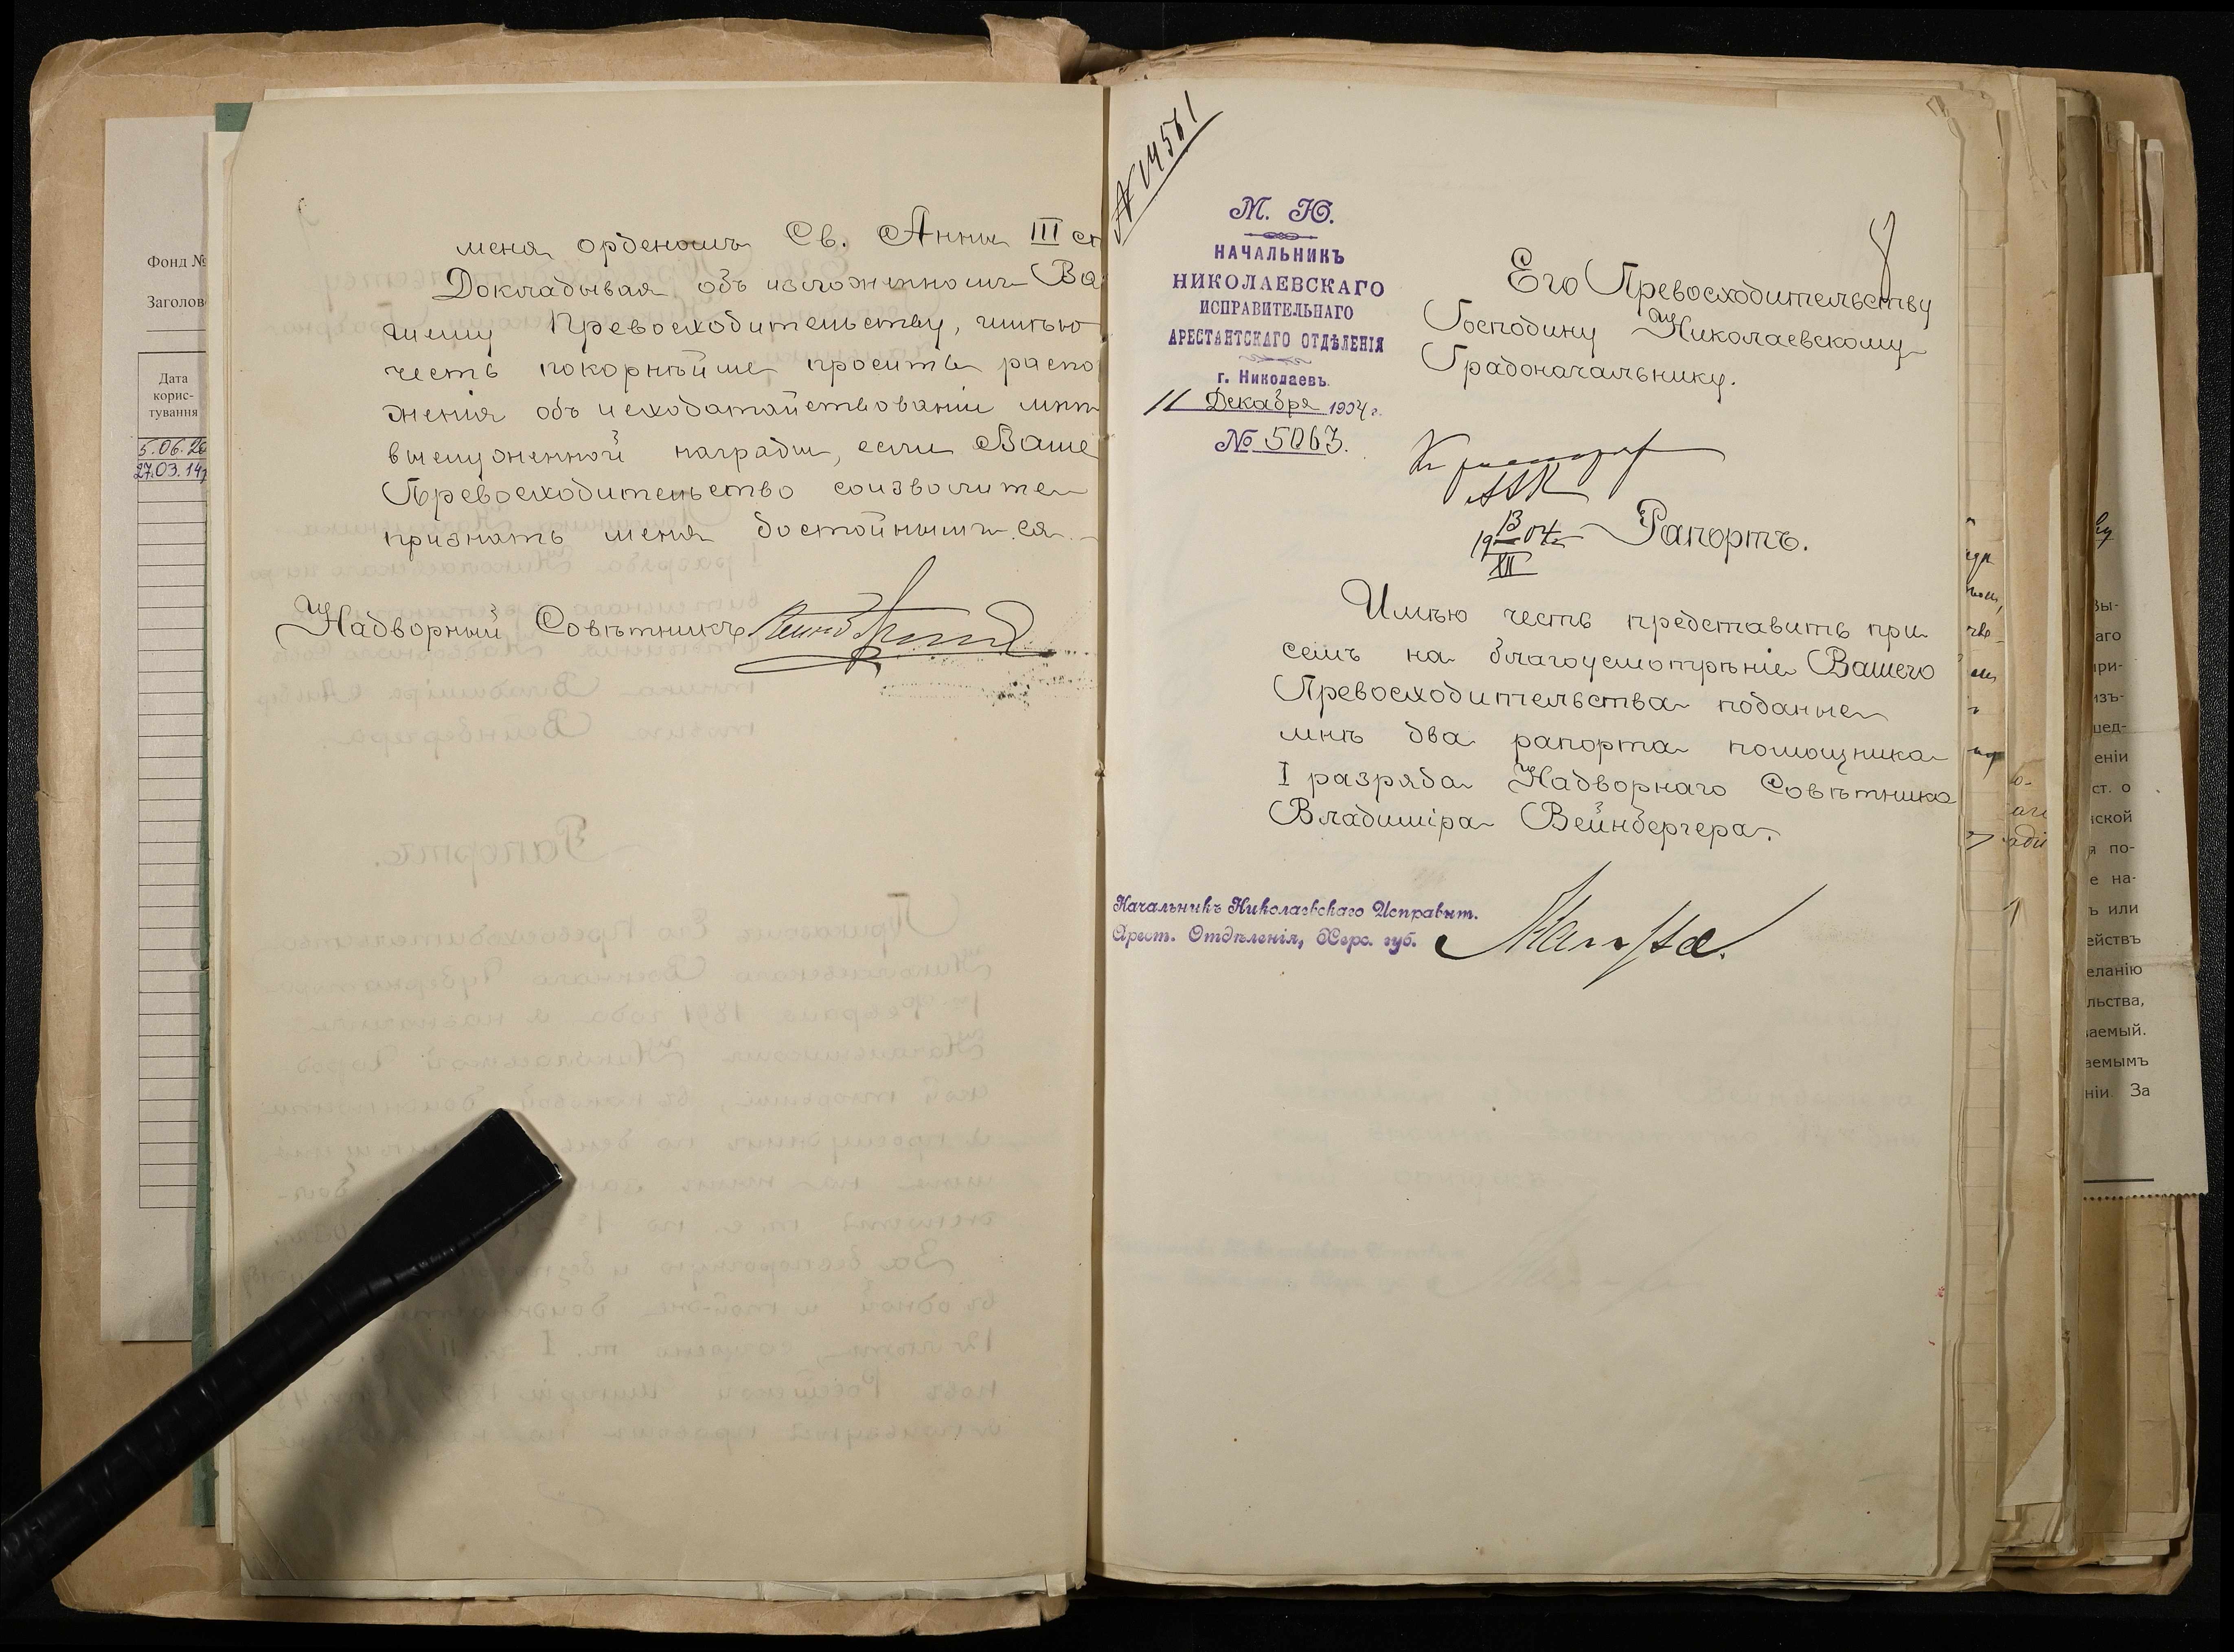 Фонд №
Заголов
Дата
корис-
тування
5.06.26
27.03.14
меня орденомъ Св. Анны III ст
Докладывая объ изложенномъ Ва
шему Превосходительству, имѣю
честь покорнѣйше просить распо
женія объ исходатайствованіи мнѣ
вышеуказанной награды, если Ваше
Превосходительство соизволите
признать меня достойнымъ ея.
Надворный Совѣтникъ
№ 14561
М. Ю.
НАЧАЛЬНИКЪ
НИКОЛАЕВСКАГО
ИСПРАВИТЕЛЬНАГО
АРЕСТАНТСКАГО ОТДѢЛЕНІЯ
г. Николаевъ.
11 Декабря 1904 г.
№ 5063.
8
Его Превосходительству
Господину Николаевскому
Градоначальнику.
19 13/XII 04 г.
Рапортъ.
Имѣю честь представить при
семъ на благоусмотрѣніе Вашего
Превосходительства поданные
мнѣ два рапорта помощника
I разряда Надворнаго Совѣтника
Владиміра Вейнбергера.
Начальникъ Николаевскаго Исправит.
Арест. Отдѣленія, Херс. губ.
Вы-
аго
ри-
изъ-
шед-
еніи
ст. о
ской
я по-
е на-
ъ или
ействъ
еланію
льства,
ваемый.
аемымъ
ніи. За